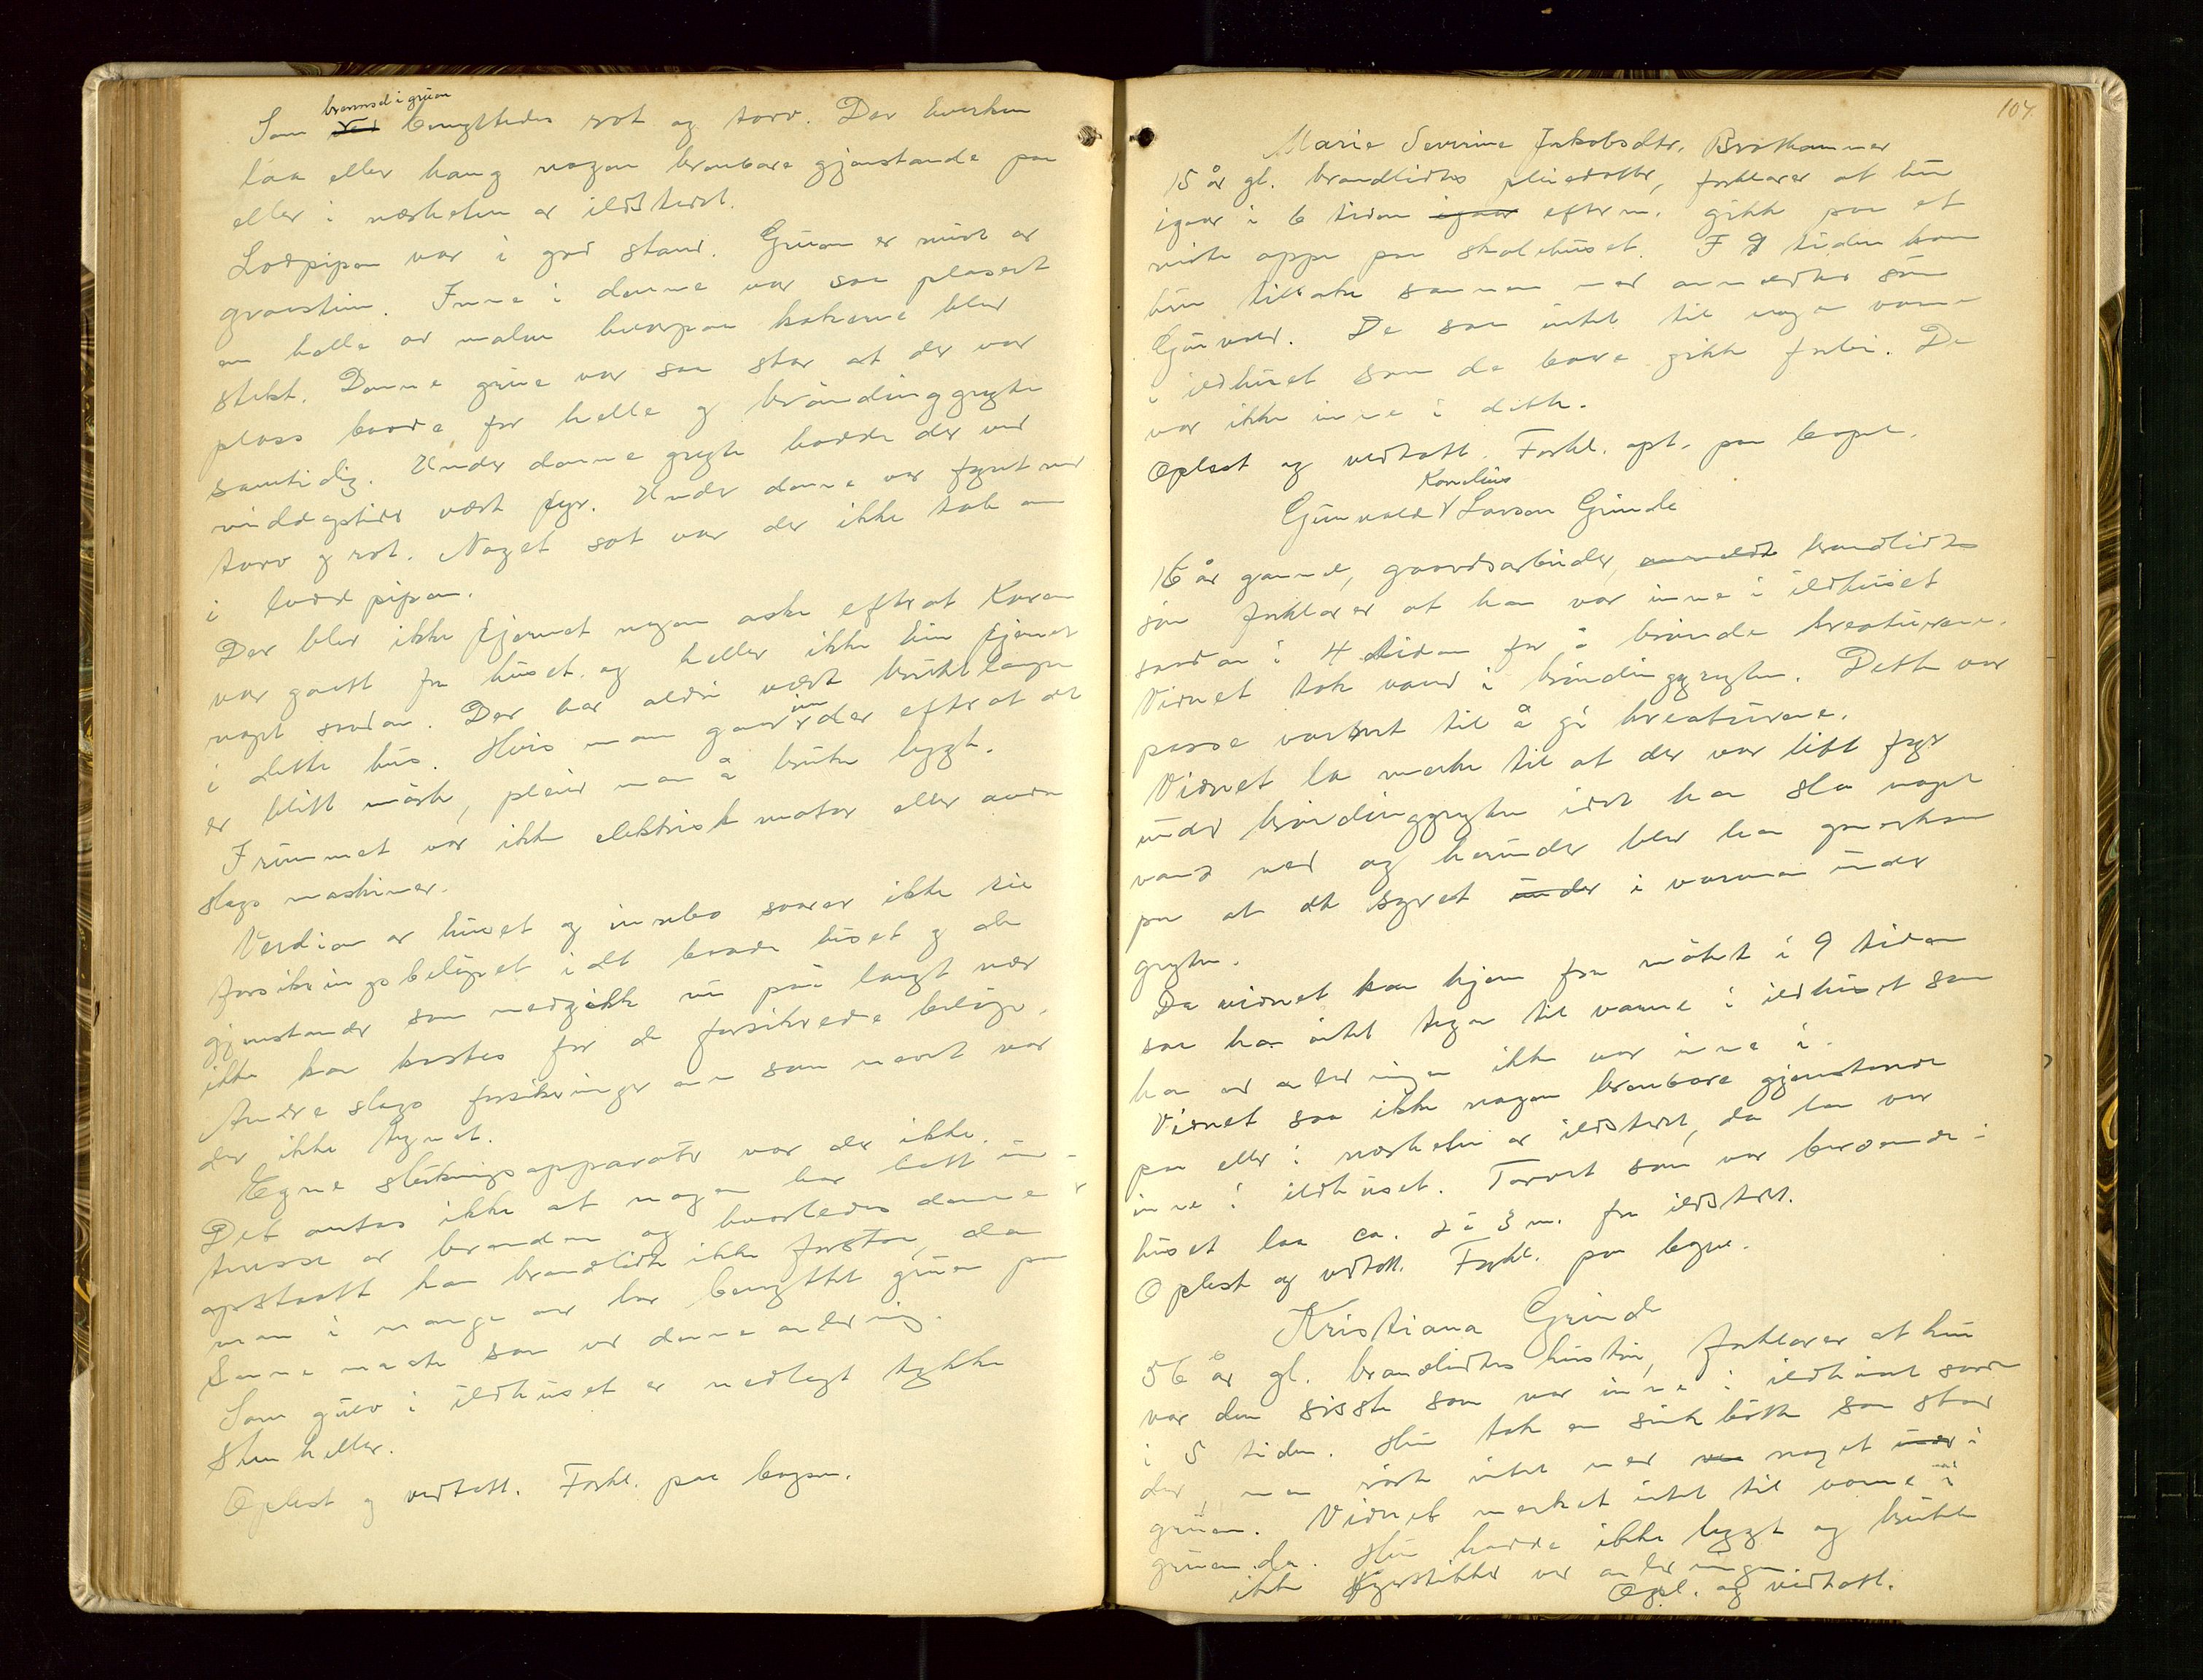 brensel i gruen
Som ved benyttedes rot og torv. Der hverken
laa eller hang nogen brenbare gjenstande paa
eller i nærheten av ildstedet.
Lodpipen var i god stand. Gruen er muret av
graasten. Inne i denne var saa plasert
en helle av malm hvorpaa kakerne blev
stekt. Denne grue var saa stor at der var
plass baade for helle og bröndinggryte
samtidig. Under denne gryte hadde der ved
middagstider vært fyr. Under denne var fyret med
torv og rot. Noget sot var der ikke tale om
i lodd pipen.
Der blev ikke fjernet nogen aske efterat Karen
var gaatt fra huset og heller ikke hun fjernet
noget sådan. Der har aldri vært brukt lampe
i dette hus. Hvis man gaar inn der efterat det
er blitt mörkt, pleier man å bruke lygt.
I rummet var ikke elektrisk motor eller andre
slags maskiner.
Verdien av huset og innbo svarer ikke til
forsikringsbelöpet idet baade huset og de
gjenstander som medgikk nu på langt nær
ikke kan kostes for de forsikrede belöp.
Andre slags forsikringer enn som nevnt var
der ikke tegnet.
Egne slukningsapparater var der ikke.
Det antas ikke at nogen har hatt in-
teresse av branden og hvorledes denne er
opstaatt kan brandlidte ikke forstaa, da
man i mange aar har benyttet gruen paa
samme maate som ved denne anledning.
Som gulv i ildhuset er nedlagt tykke
sten heller.
Oplest og vedtatt. Forkl. paa begjær.
107.
Marie Severine Jakobsdtr. Brötkammer
15 år gl. brandlidtes pleiedatter, forklarer at hun
igaar i 6 tiden igaar efterm. gikk paa et
möte oppe paa skolehuset. I 9 tiden kom
hun tilbake sammen med anmeldtes sön
Gunvald. De saa intet til nogen varme
i ildhuset som de bare gikk forbi. De
var ikke inne i dette.
Oplest og vedtatt. Forkl. opt. paa begjær.
Kornelius
Gunvald Larsen Grinde
16 år gammel, gaardsarbeider, anmeldte brandlidtes
sön forklarer at han var inne i ildhuset
sondan i 4 tiden for å brönde kreaturene.
Vidnet tok vand i bröndinggryten. Dette var
passe varmt til å gi kreaturene.
Vidnet la merke til at der var litt fyr
under bröndinggryten idet han slo noget
vand ned og herunder blev han opmerksom
paa at det syret under i varmen under
gryten.
Da vidnet kom hjem fra mötet i 9 tiden
saa han intet tegn til varme i ildhuset som
han ved anledningen ikke var inne i.
Vidnet saa ikke nogen brenbare gjenstande
paa eller i nærheten av ildstedet, da han var
inne i ildhuset. Torvet som var beroende i
huset laa ca. 2 à 3 m. fra ildstedet.
Oplest og vedtatt. Forkl. paa begjær.
Kristiana Grinde
56 år gl. brandlidtes hustru, forklarer at hun
var den sisste som var inne i ildhuset sondan
i 5 tiden. Hun tok en sinkbötte som stod
der, men rörte intet med ved noget under i
gruen. Vidnet merket intet til varme i
gruen da. Hun hadde ikke lygt og brukte
ikke fyrstikker ved anledningen.
Opl. og vedtatt.